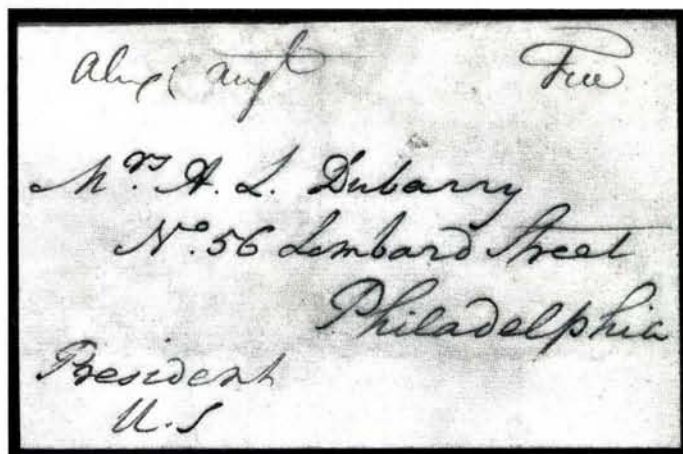 Augt Free
Mrs. A. L. Dubarry
No. 56 Lombard Street
Philadelphia
President
U.S